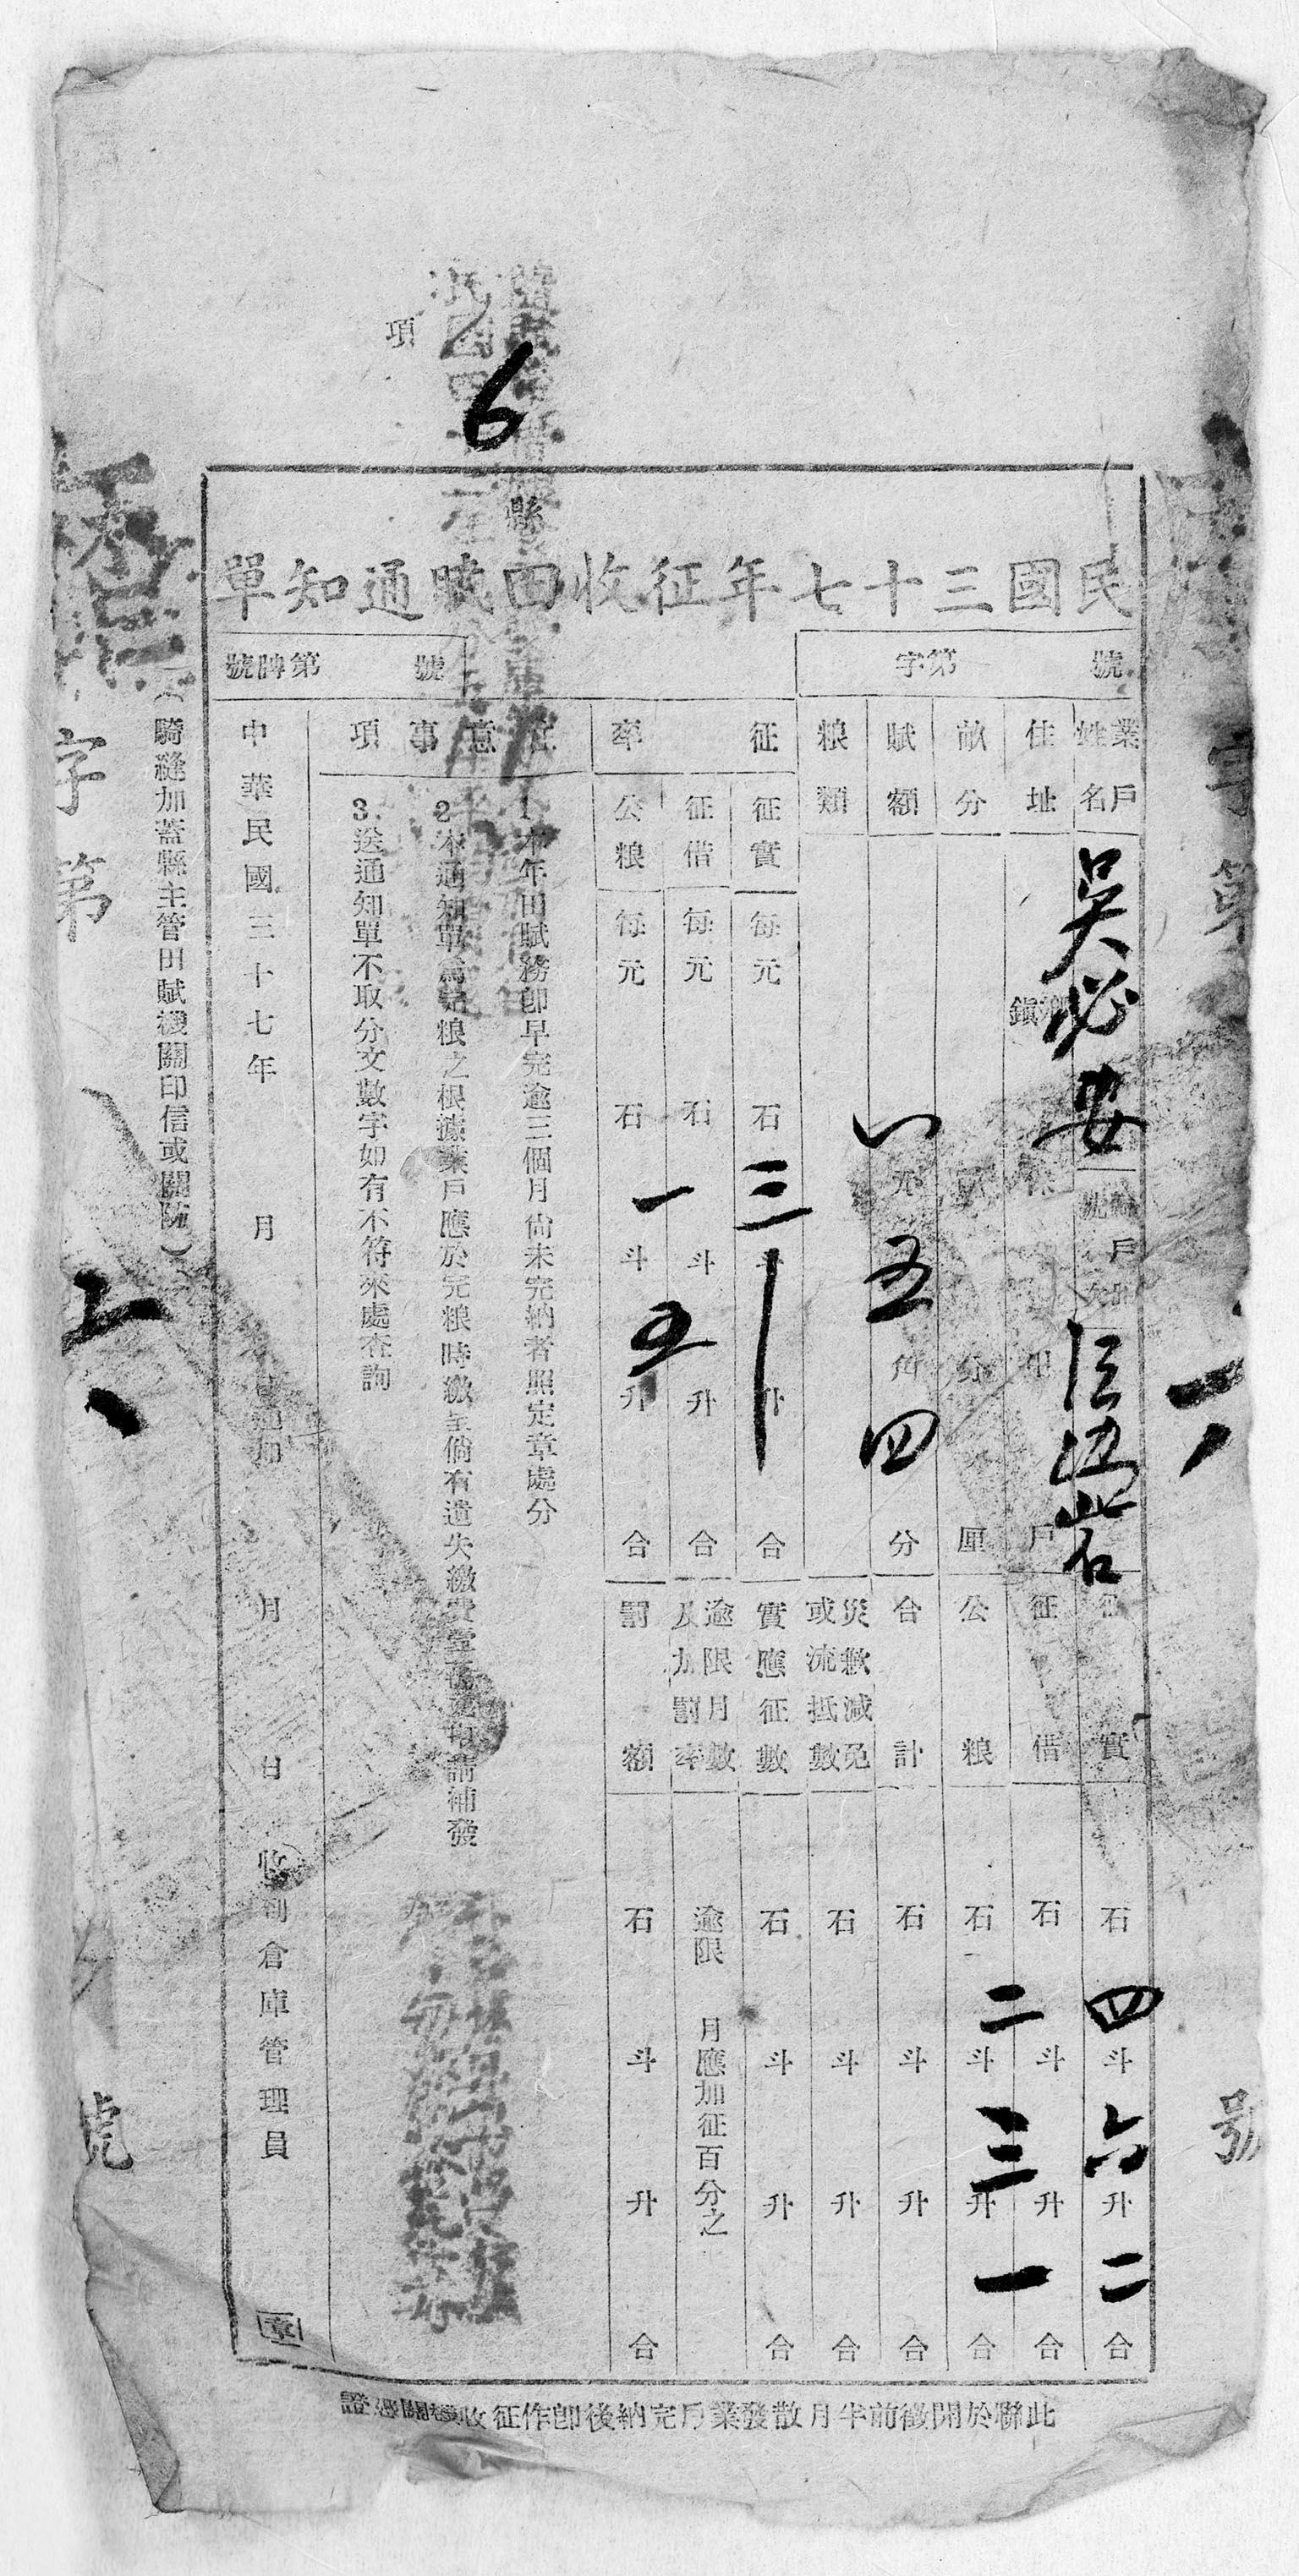 項
6
縣
民國三十七年征收田賦通知單
字第 號
第 號
號牌第
業戶姓名 吳必安
住址 鄉鎮 保 甲 戶
畝分 畝 分 厘
賦額 元 五 角 四 分
粮類
征率
征實 每元 石 三 斗 升 合
征借 每元 石 斗 升 合
公粮 每元 石 一 斗 五 升 合
征實 石 四 斗 六 升 二 合
征借 石 斗 升 合
公粮 石 二 斗 三 升 一 合
合計 石 斗 升 合
災歉減免或流抵數 石 斗 升 合
實應征數 石 斗 升 合
逾限月數及加罰率 逾限 月應加征百分之
罰額 石 斗 升 合
注意事項
1.本年田賦務卽早完逾三個月尚未完納者照定章處分
2.本通知單為完粮之根據業戶應於完粮時繳呈倘有遺失繳費 申請補發
3.送通知單不取分文數字如有不符來處查詢
中華民國三十七年 月 日通知
月 日 收到倉庫管理員 章
(騎縫加蓋縣主管田賦機關印信或關防)
字第 六 號
字第 號
此聯於開徵前半月散發業戶完納後卽作征收機關憑證